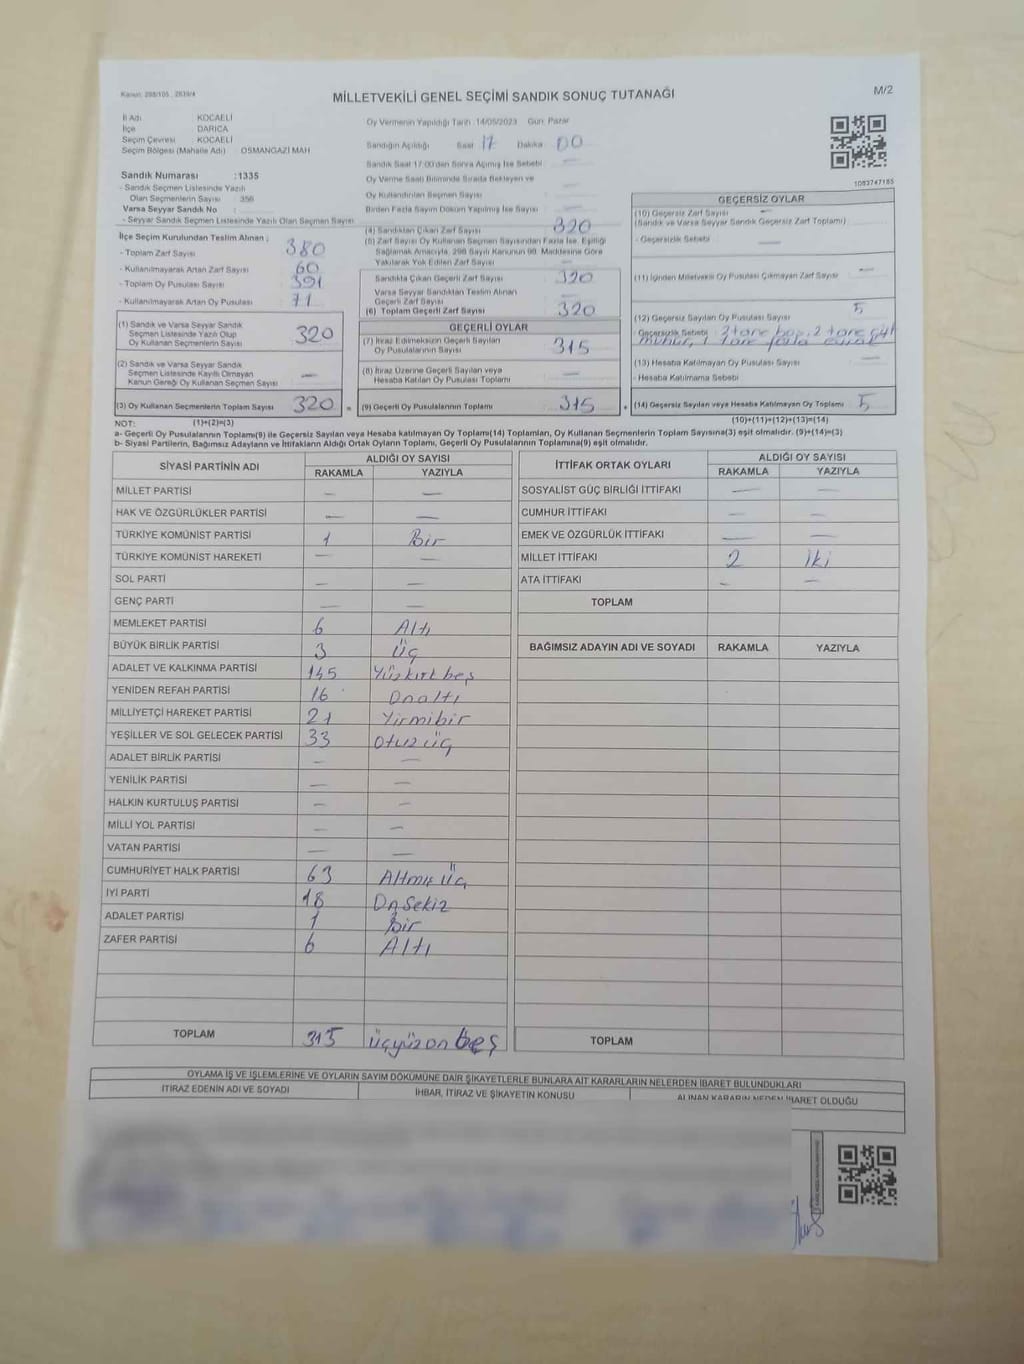 Kanun: 298/105 , 2839/4
MİLLETVEKİLİ GENEL SEÇİMİ SANDIK SONUÇ TUTANAĞI
M/2
İl Adı KOCAELİ
İlçe DARICA
Seçim Çevresi KOCAELİ
Seçim Bölgesi (Mahalle Adı) OSMANGAZİ MAH
Sandık Numarası :1335
- Sandık Seçmen Listesinde Yazılı
Olan Seçmenlerin Sayısı : 356
Varsa Seyyar Sandık No :
- Seyyar Sandık Seçmen Listesinde Yazılı Olan Seçmen Sayısı
Oy Vermenin Yapıldığı Tarih :14/05/2023 Gün: Pazar
Sandığın Açıldığı Saat 17 Dakika 00
Sandık Saat 17:00'den Sonra Açılmış İse Sebebi : —
Oy Verme Saati Bitiminde Sırada Bekleyen ve
Oy Kullandırılan Seçmen Sayısı —
Birden Fazla Sayım Döküm Yapılmış İse Sayısı —
1083747185
İlçe Seçim Kurulundan Teslim Alınan ;
- Toplam Zarf Sayısı 380
- Kullanılmayarak Artan Zarf Sayısı 60
- Toplam Oy Pusulası Sayısı 391
- Kullanılmayarak Artan Oy Pusulası 71
(1) Sandık ve Varsa Seyyar Sandık
Seçmen Listesinde Yazılı Olup
Oy Kullanan Seçmenlerin Sayısı 320
(2) Sandık ve Varsa Seyyar Sandık
Seçmen Listesinde Kayıtlı Olmayan
Kanun Gereği Oy Kullanan Seçmen Sayısı —
(3) Oy Kullanan Seçmenlerin Toplam Sayısı 320 =
(4) Sandıktan Çıkan Zarf Sayısı 320
(5) Zarf Sayısı Oy Kullanan Seçmen Sayısından Fazla İse, Eşitliği
Sağlamak Amacıyla, 298 Sayılı Kanunun 98. Maddesine Göre
Yakılarak Yok Edilen Zarf Sayısı —
Sandıkta Çıkan Geçerli Zarf Sayısı 320
Varsa Seyyar Sandıktan Teslim Alınan
Geçerli Zarf Sayısı —
(6) Toplam Geçerli Zarf Sayısı 320
GEÇERLİ OYLAR
(7) İtiraz Edilmeksizin Geçerli Sayılan
Oy Pusulalarının Sayısı 315
(8) İtiraz Üzerine Geçerli Sayılan veya
Hesaba Katılan Oy Pusulası Toplamı —
(9) Geçerli Oy Pusulalarının Toplamı 315 +
GEÇERSİZ OYLAR
(10) Geçersiz Zarf Sayısı —
(Sandık ve Varsa Seyyar Sandık Geçersiz Zarf Toplamı)
- Geçersizlik Sebebi : —
(11) İçinden Milletvekili Oy Pusulası Çıkmayan Zarf Sayısı —
(12) Geçersiz Sayılan Oy Pusulası Sayısı 5
- Geçersizlik Sebebi : 2 tane boş, 2 tane çift
mühür, 1 tane fazla evrak
(13) Hesaba Katılmayan Oy Pusulası Sayısı —
- Hesaba Katılmama Sebebi
(14) Geçersiz Sayılan veya Hesaba Katılmayan Oy Toplamı 5
NOT: (1)+(2)=(3) (10)+(11)+(12)+(13)=(14)
a- Geçerli Oy Pusulalarının Toplamı(9) ile Geçersiz Sayılan veya Hesaba katılmayan Oy Toplamı(14) Toplamları, Oy Kullanan Seçmenlerin Toplam Sayısına(3) eşit olmalıdır. (9)+(14)=(3)
b- Siyasi Partilerin, Bağımsız Adayların ve İttifakların Aldığı Ortak Oyların Toplamı, Geçerli Oy Pusulalarının Toplamına(9) eşit olmalıdır.
SİYASİ PARTİNİN ADI ALDIĞI OY SAYISI
RAKAMLA YAZIYLA
MİLLET PARTİSİ — —
HAK VE ÖZGÜRLÜKLER PARTİSİ — —
TÜRKİYE KOMÜNİST PARTİSİ 1 Bir
TÜRKİYE KOMÜNİST HAREKETİ — —
SOL PARTİ — —
GENÇ PARTİ — —
MEMLEKET PARTİSİ 6 Altı
BÜYÜK BİRLİK PARTİSİ 3 Üç
ADALET VE KALKINMA PARTİSİ 145 Yüzkırkbeş
YENİDEN REFAH PARTİSİ 16 Onaltı
MİLLİYETÇİ HAREKET PARTİSİ 21 Yirmibir
YEŞİLLER VE SOL GELECEK PARTİSİ 33 Otuzüç
ADALET BİRLİK PARTİSİ — —
YENİLİK PARTİSİ — —
HALKIN KURTULUŞ PARTİSİ — —
MİLLİ YOL PARTİSİ — —
VATAN PARTİSİ — —
CUMHURİYET HALK PARTİSİ 63 Altmış Üç
İYİ PARTİ 18 Onsekiz
ADALET PARTİSİ 1 Bir
ZAFER PARTİSİ 6 Altı
TOPLAM 315 Üçyüzonbeş
İTTİFAK ORTAK OYLARI ALDIĞI OY SAYISI
RAKAMLA YAZIYLA
SOSYALİST GÜÇ BİRLİĞİ İTTİFAKI — —
CUMHUR İTTİFAKI — —
EMEK VE ÖZGÜRLÜK İTTİFAKI — —
MİLLET İTTİFAKI 2 İki
ATA İTTİFAKI — —
TOPLAM
BAĞIMSIZ ADAYIN ADI VE SOYADI RAKAMLA YAZIYLA
TOPLAM
OYLAMA İŞ VE İŞLEMLERİNE VE OYLARIN SAYIM DÖKÜMÜNE DAİR ŞİKAYETLERLE BUNLARA AİT KARARLARIN NELERDEN İBARET BULUNDUKLARI
İTİRAZ EDENİN ADI VE SOYADI İHBAR, İTİRAZ VE ŞİKAYETİN KONUSU ALINAN KARARIN NEDEN İBARET OLDUĞU